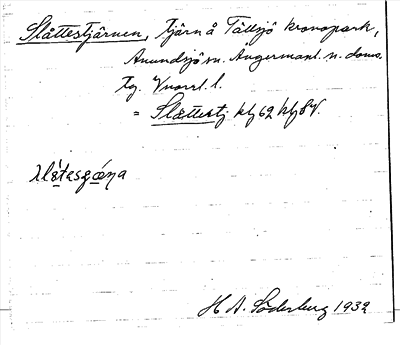 Slåttestjärnen, tjärn å Tällsjö kronopark,
Anundsjö sn. Ångermanl. n. doms.
tg. Vnorrl. l.
= Slættestj. kbl 62 kbl SV.
Söderberg 1932
H A. Söderberg 1932